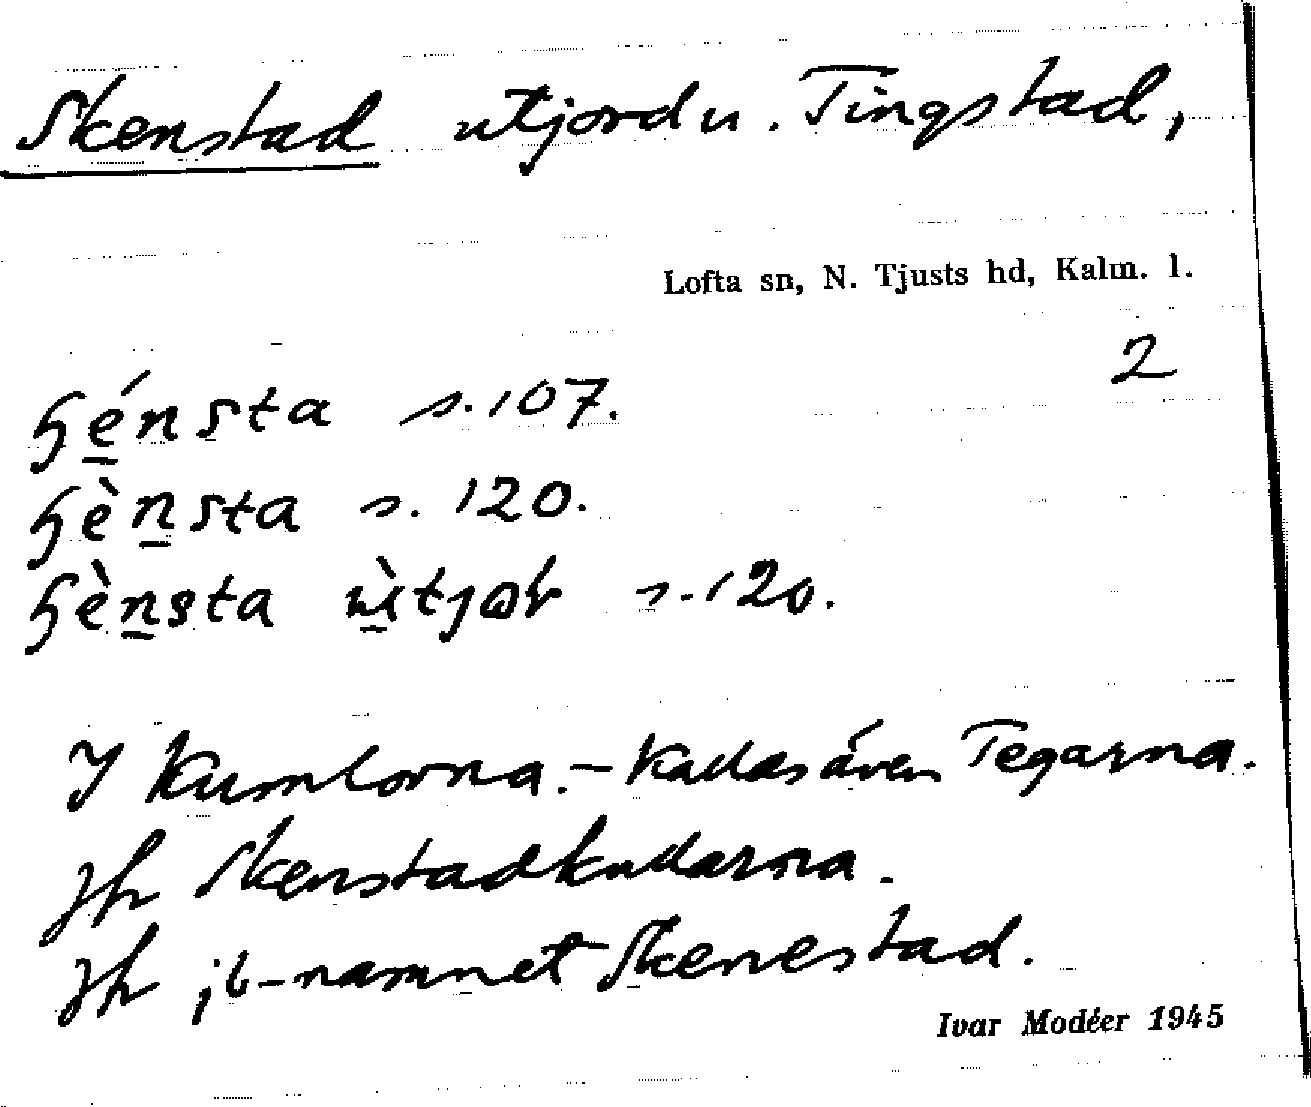 Skenstad utjord u. Tingstad,
Lofta sn, N. Tjusts hd, Kalm. l.
2
ɧénsta s. 107.
ɧènsta s. 120.
ɧènsta s. 120.
I Kumlorna. – Kallas även Tegarna.
Jfr Skenstadkullarna.
Jfr jb-namnet Skenestad.
Ivar Modéer 1945